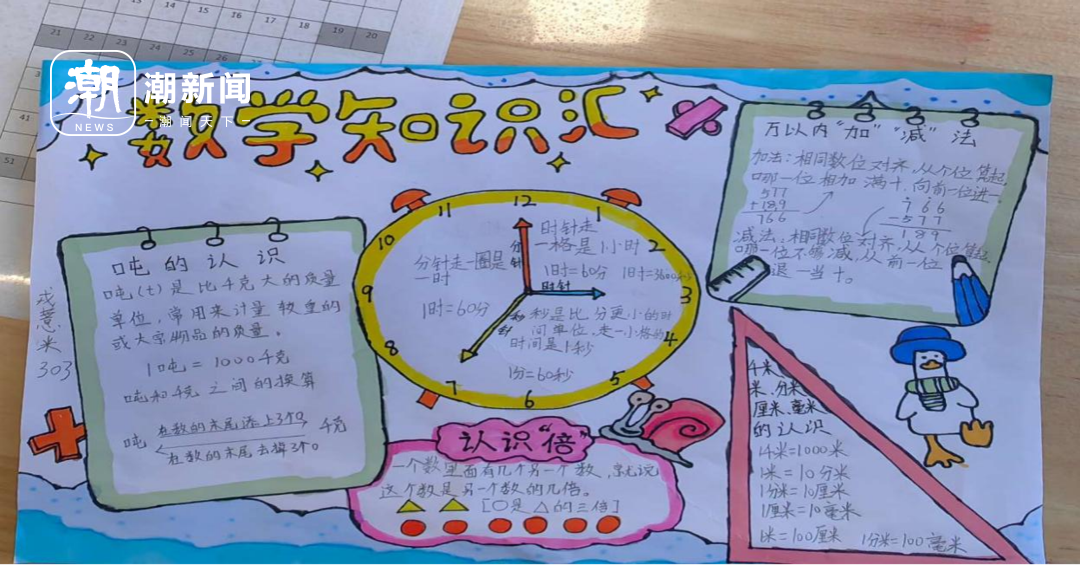 15
16
17
18
19
20
21
22
23
24
25
41
51
潮
NEWS
潮新闻
潮闻天下
数学知识汇
吨的认识
吨(t)是比千克大的质量
单位,常用来计量较重的
或大宗物品的质量。
1吨=1000千克
吨和千克之间的换算
吨 在数的末尾添上3个0 千克
在数的末尾去掉3个0
303
12
1
2
3
4
5
6
7
8
9
10
11
分针走一圈是
一时
1时=60分
时针走
一格是1小时
1时=60分 1时=3600秒
分针
时针
秒针
秒是比分更小的时
间单位,走一小格的
时间是1秒
1分=60秒
认识“倍”
一个数里面有几个另一个数,就说
这个数是另一个数的几倍。
[○是△的三倍]
万以内“加”“减”法
加法:相同数位对齐,从个位算起,
哪一位相加满十,向前一位进一。
577
+189
766
766
-577
189
减法:相同数位对齐,从个位算起,
哪一位不够减,从前一位
退一当十。
千米、
米、分米、
厘米、毫米
的认识
1千米=1000米
1米=10分米
1分米=10厘米
1厘米=10毫米
1米=100厘米 1分米=100毫米